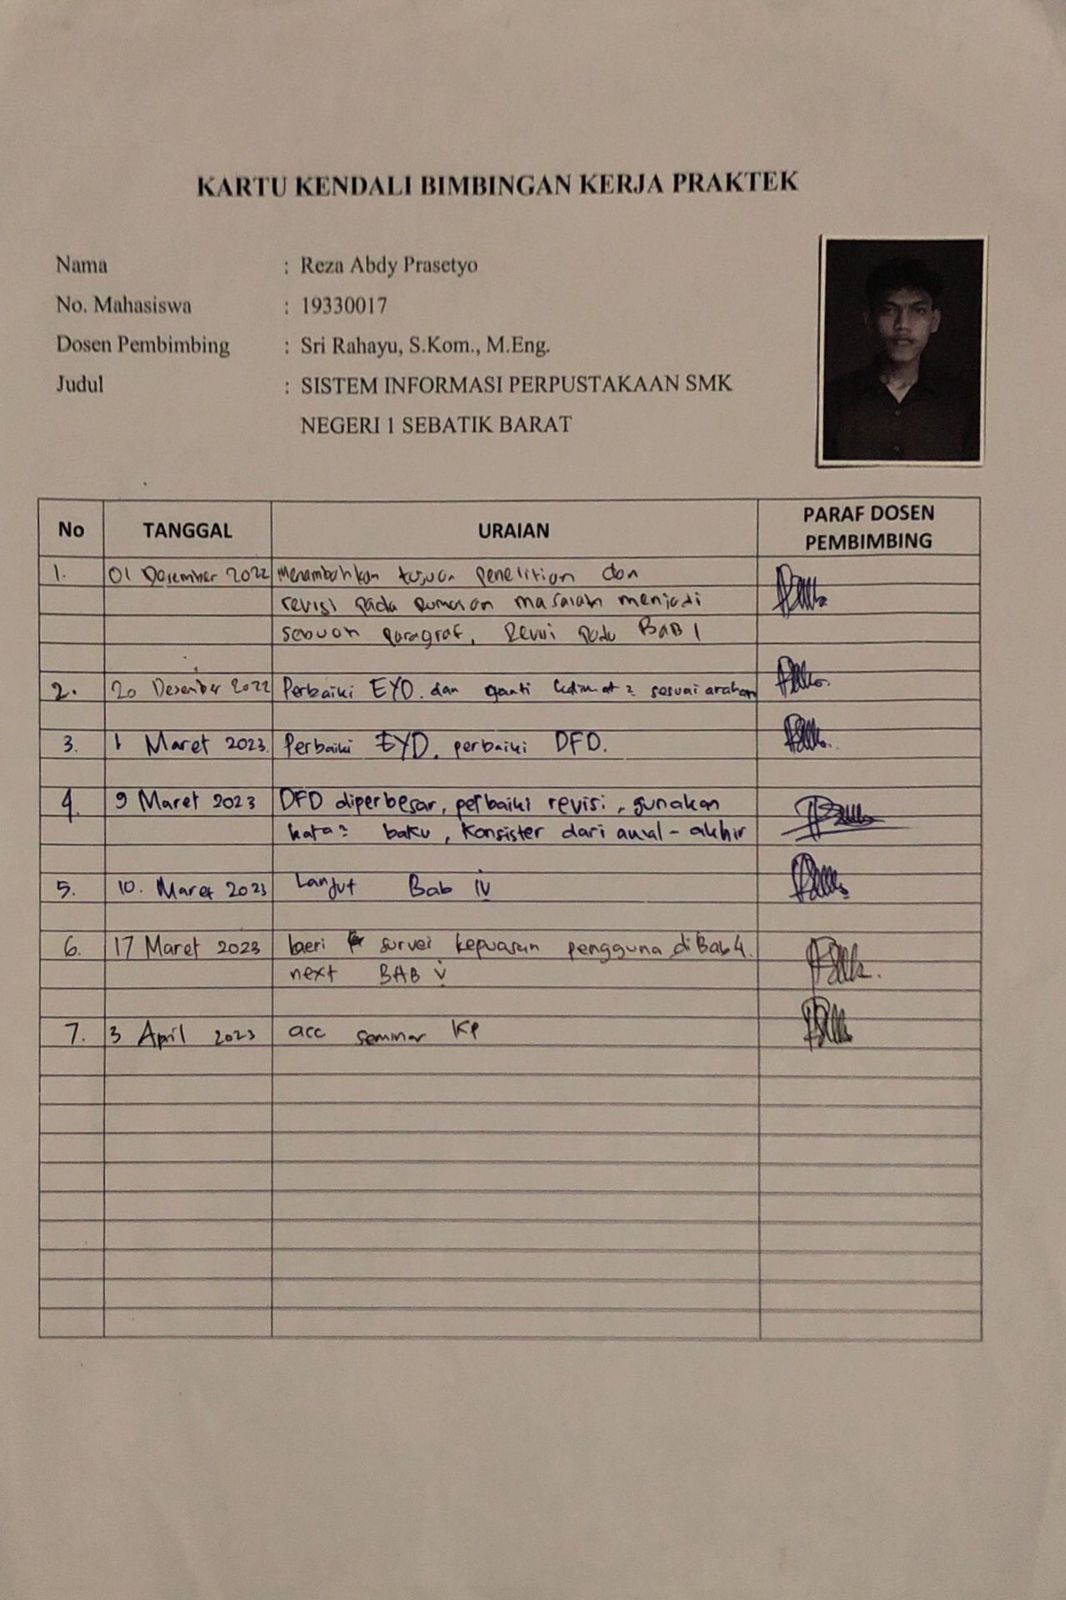 KARTU KENDALI BIMBINGAN KERJA PRAKTEK
Nama : Reza Abdy Prasetyo
No. Mahasiswa : 19330017
Dosen Pembimbing : Sri Rahayu, S.Kom., M.Eng.
Judul : SISTEM INFORMASI PERPUSTAKAAN SMK
NEGERI 1 SEBATIK BARAT
No TANGGAL URAIAN PARAF DOSEN PEMBIMBING
1. 01 Desember 2022 Menambahkan tujuan penelitian dan
revisi pada rumusan masalah menjadi
sebuah paragraf, Revisi pada BAB 1
2. 20 Desember 2022 Perbaiki EYD. dan ganti kalimat2 sesuai arahan
3. 1 Maret 2023. Perbaiki EYD. perbaiki DFD.
4. 9 Maret 2023 DFD diperbesar, perbaiki revisi, gunakan
kata2 baku, konsisten dari awal - akhir
5. 10. Maret 2023 Lanjut Bab IV
6. 17 Maret 2023 beri survei kepuasan pengguna di Bab 4.
next BAB V
7. 3 April 2023 acc seminar KP